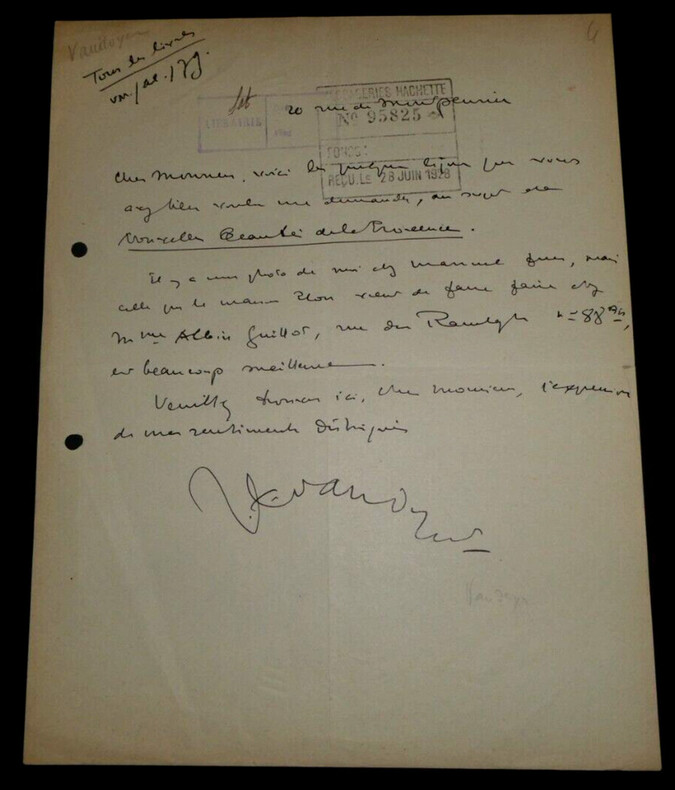 Vaudoyer
Tous les livres
20 rue de
MESSAGERIES HACHETTE
Nº 95825
LIBRAIRIE
REÇU.LE 28 JUIN 1928
Cher Monsieur, voici les quelques lignes que vous
avez bien voulu me demander, au sujet des
Nouvelles Beautés de la Provence.
Il y a une photo de moi chez Manuel frères, mais
celle que la maison Plon vient de faire faire chez
Mme Albin Guillot, rue du Ranelagh nº 88 bis,
est beaucoup meilleure.
Veuillez trouver ici, cher Monsieur, l'expression
de mes sentiments distingués
J.L. Vaudoyer
Vaudoyer